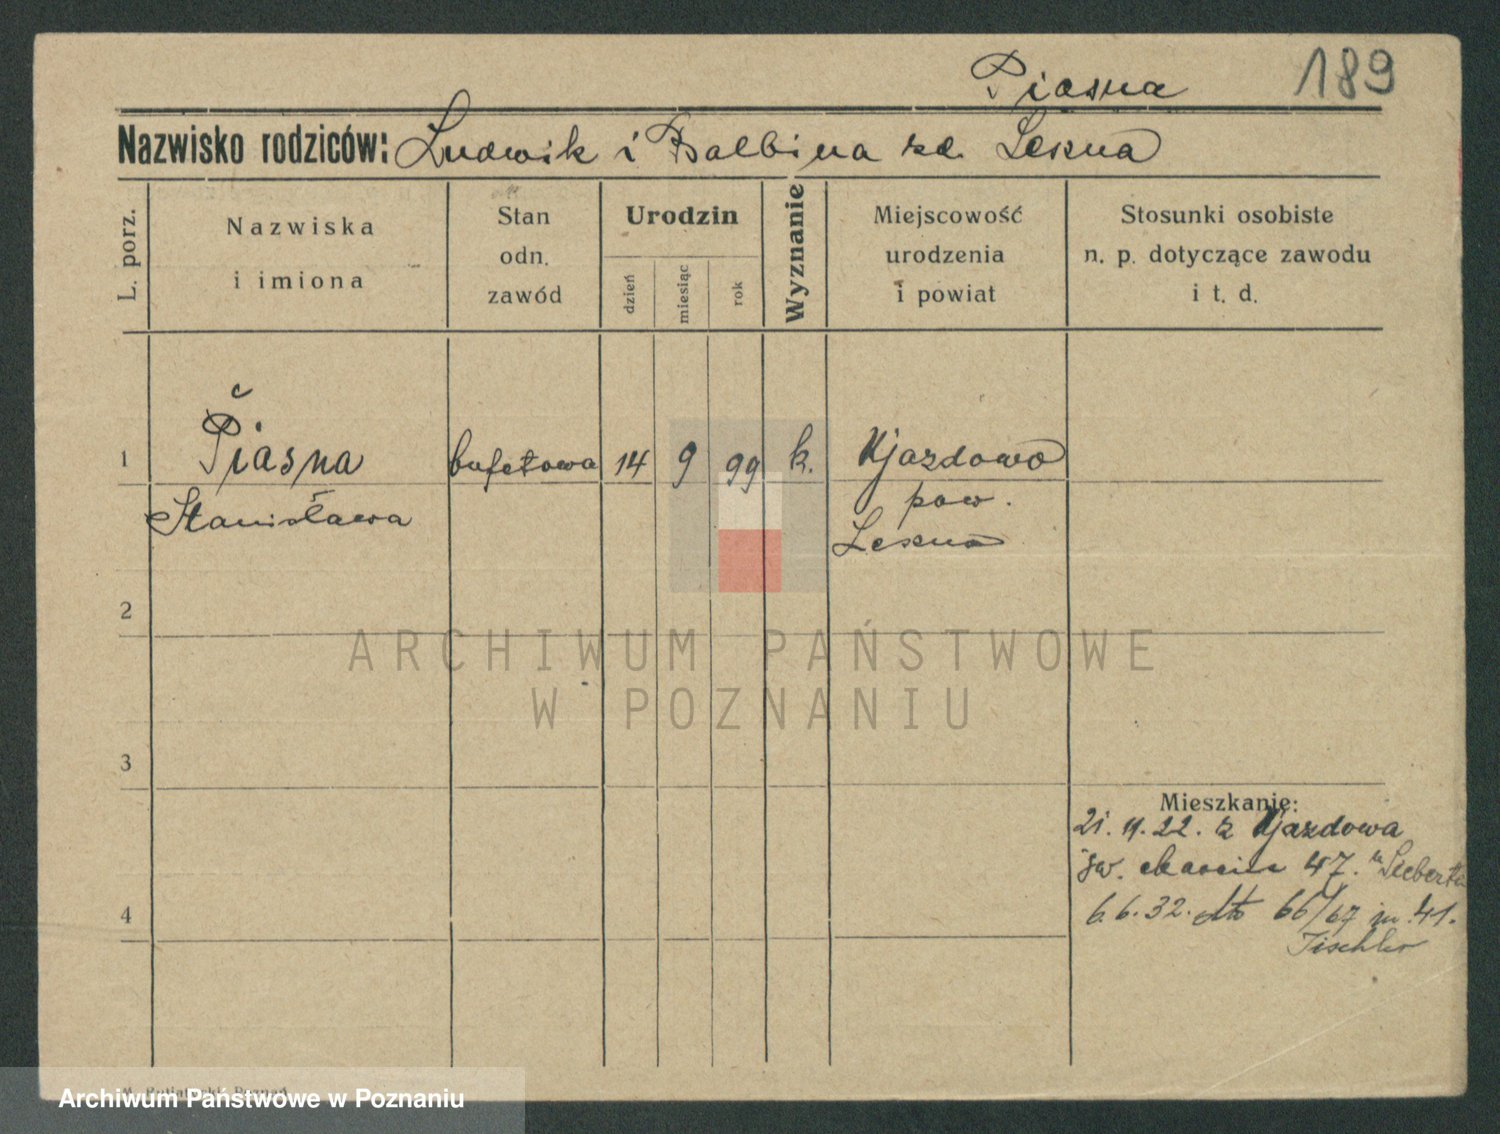 Piasna 189
Nazwisko rodziców: Ludwik i Balbina zd. Leszna
L. porz.
Nazwiska
i imiona
Stan
odn.
zawód
Urodzin
dzień
miesiąc
rok
Wyznanie
Miejscowość
urodzenia
i powiat
Stosunki osobiste
n. p. dotyczące zawodu
i t. d.
1 Piasna bufetowa 14 9 99 k. Ujazdowo
Stanisława pow.
Leszno
2
ARCHIWUM PAŃSTWOWE
W POZNANIU
3
Mieszkanie:
21. 11. 22. z Ujazdowa
św. Marcin 47.
6. 6. 32. dto 66/67 m. 41.
4
Tischler
Archiwum Państwowe w Poznaniu